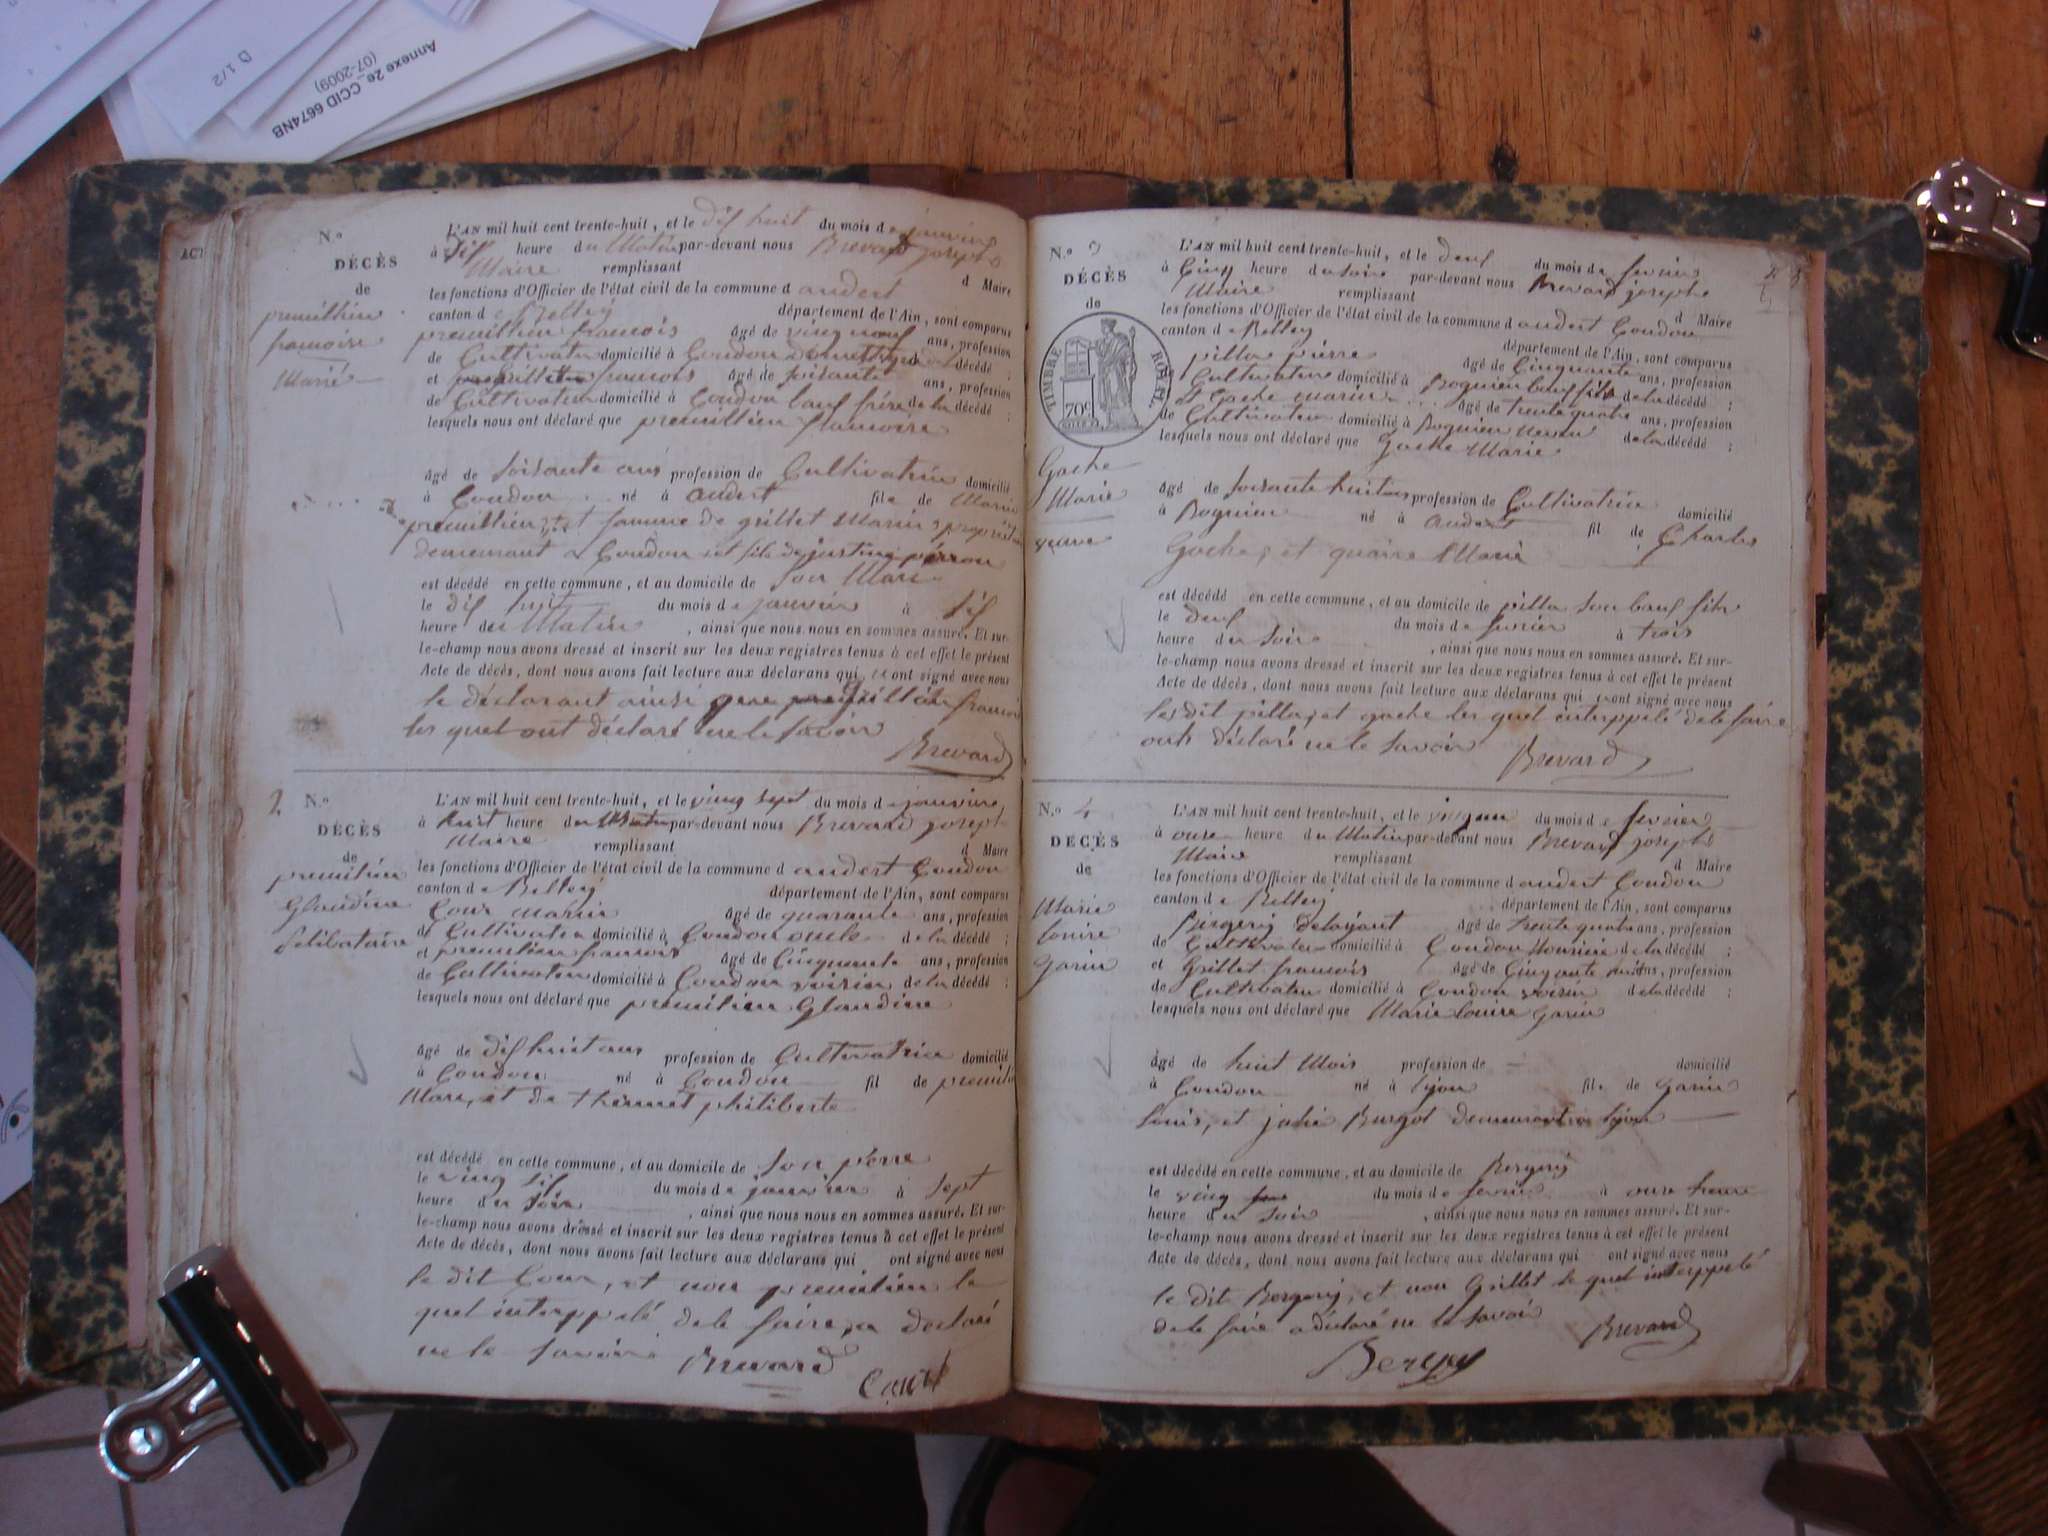 Annexe 2e_CCID 6674NB
(07-2009)
D 1/2
ACT
N.º
DÉCÈS
de
premillieu
francoise
Marié
L'AN mil huit cent trente-huit, et le dix huit du mois de janvier
à dix heure du Matin par-devant nous Brevard joseph
Maire remplissant d Maire
les fonctions d'Officier de l'état civil de la commune d andert
canton d e Belley département de l'Ain, sont comparus
premillieu francois âgé de ving neuf ans, profession
de Cultivateur domicilié à Condon décédé ;
et francois âgé de soisante ans, profession
de Cultivateur domicilié à Condon bauf frère de la décédé ;
lesquels nous ont déclaré que premillieu francoise
âgé de soisante ans profession de Cultivatrice domicilié
à Condon né à andert file de Marin
premillieu et famme de grillet Marin propriétaire
demeurant a Condon et file de justine perron
est décédé en cette commune, et au domicile de son Mari
le dix huit du mois de janvier à dix
heure du Matin , ainsi que nous nous en sommes assuré. Et sur-
le-champ nous avons dressé et inscrit sur les deux registres tenus à cet effet le présent
Acte de décès, dont nous avons fait lecture aux déclarans qui n ont signé avec nous
le déclarant ainsi que francois
les quel ont déclaré ne le savoir
Brevard
2 N.º
DÉCÈS
de
premilieu
Glaudine
Selibataire
L'AN mil huit cent trente-huit, et le ving sept du mois de janvier
à huit heure du Matin par-devant nous Brevard joseph
Maire remplissant d Maire
les fonctions d'Officier de l'état civil de la commune d andert Condon
canton d e Belley département de l'Ain, sont comparus
Cour marin âgé de quarante ans, profession
de Cultivateur domicilié à Condon oncle de la décédé ;
et premilieu francois âgé de Cinquante ans, profession
de Cultivateur domicilié à Condon voisin de la décédé ;
lesquels nous ont déclaré que premilieu Glaudine
âgé de dix huit ans profession de Cultivatrice domicilié
à Condon né à Condon fil de premili
Marc, et de thennet philiberte
est décédé en cette commune, et au domicile de son père
le ving six du mois de janvier à sept
heure du soir , ainsi que nous nous en sommes assuré. Et sur-
le-champ nous avons dressé et inscrit sur les deux registres tenus à cet effet le présent
Acte de décès, dont nous avons fait lecture aux déclarans qui ont signé avec nous
le dit Cour, et non premilieu le
quel interppelé de le faire, a déclaré
ne le savoir Brevard
N.º 3
DÉCÈS
de
TIMBRE ROYAL
70c
Gache
Marie
veuve
L'AN mil huit cent trente-huit, et le deux du mois de fevrier
à Cinq heure du soir par-devant nous Brevard josephe
Maire remplissant d Maire
les fonctions d'Officier de l'état civil de la commune d andert Condon
canton d e Belley département de l'Ain, sont comparus
pilla pierre âgé de Cinquante ans, profession
Cultivateur domicilié à Bognieu bauf fils de la décédé ;
et Gache marin âgé de trente quatre ans, profession
de Cultivateur domicilié à Bognieu neveu de la décédé ;
lesquels nous ont déclaré que Gache Marie
âgé de soisante huit ans profession de Cultivatrice domicilié
à Bognieu né à andert fil de Charles
Gache, et quaire Marie
est décédé en cette commune, et au domicile de pilla son bauf fils
le deux du mois de fevrier à trois
heure du soir , ainsi que nous nous en sommes assuré. Et sur-
le-champ nous avons dressé et inscrit sur les deux registres tenus à cet effet le présent
Acte de décès, dont nous avons fait lecture aux déclarans qui n ont signé avec nous
les dit pilla, et gache les quel interppelé de le faire
onts déclaré ne le savoir Brevard
N.º 4
DÉCÈS
de
Marie
louise
garin
L'AN mil huit cent trente-huit, et le du mois de fevrier
à onze heure du Matin par-devant nous Brevard josephe
Maire remplissant d Maire
les fonctions d'Officier de l'état civil de la commune d andert Condon
canton d e Belley département de l'Ain, sont comparus
âgé de trente quatre ans, profession
de Cultivateur domicilié à Condon de la décédé ;
et Grillet francois âgé de Cinqante huit ans, profession
de Cultivateur domicilié à Condon voisin de la décédé ;
lesquels nous ont déclaré que Marie louise garin
âgé de huit Mois profession de domicilié
à Condon né à lyon file de garin
louis, et julie Burgot demeurant a lyon
est décédé en cette commune, et au domicile de Bergerij
le ving du mois de fevrier à onze heure
heure du soir , ainsi que nous nous en sommes assuré. Et sur-
le-champ nous avons dressé et inscrit sur les deux registres tenus à cet effet le présent
Acte de décès, dont nous avons fait lecture aux déclarans qui ont signé avec nous
le dit Bergerij, et non Grillet le quel interppelé
de le faire a déclaré ne le savoir Brevard